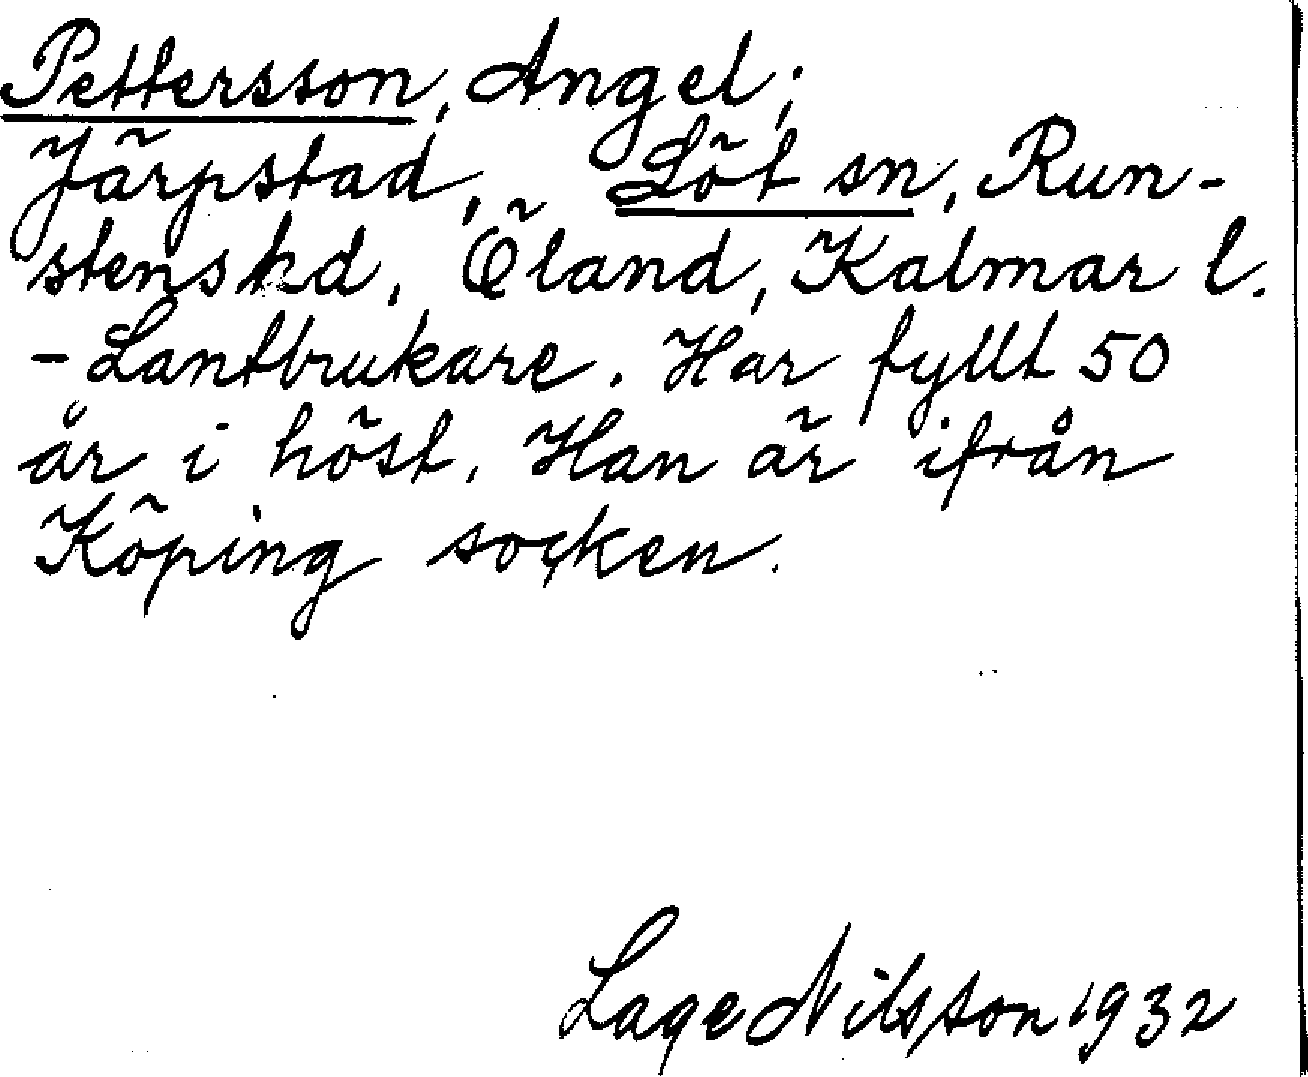 Pettersson, Angel;
Järpstad, Löt sn, Run-
stens hd, Öland, Kalmar l.
- Lantbrukare. Har fyllt 50
år i höst. Han är ifrån
Köping socken.
Lage Nilsson 1932